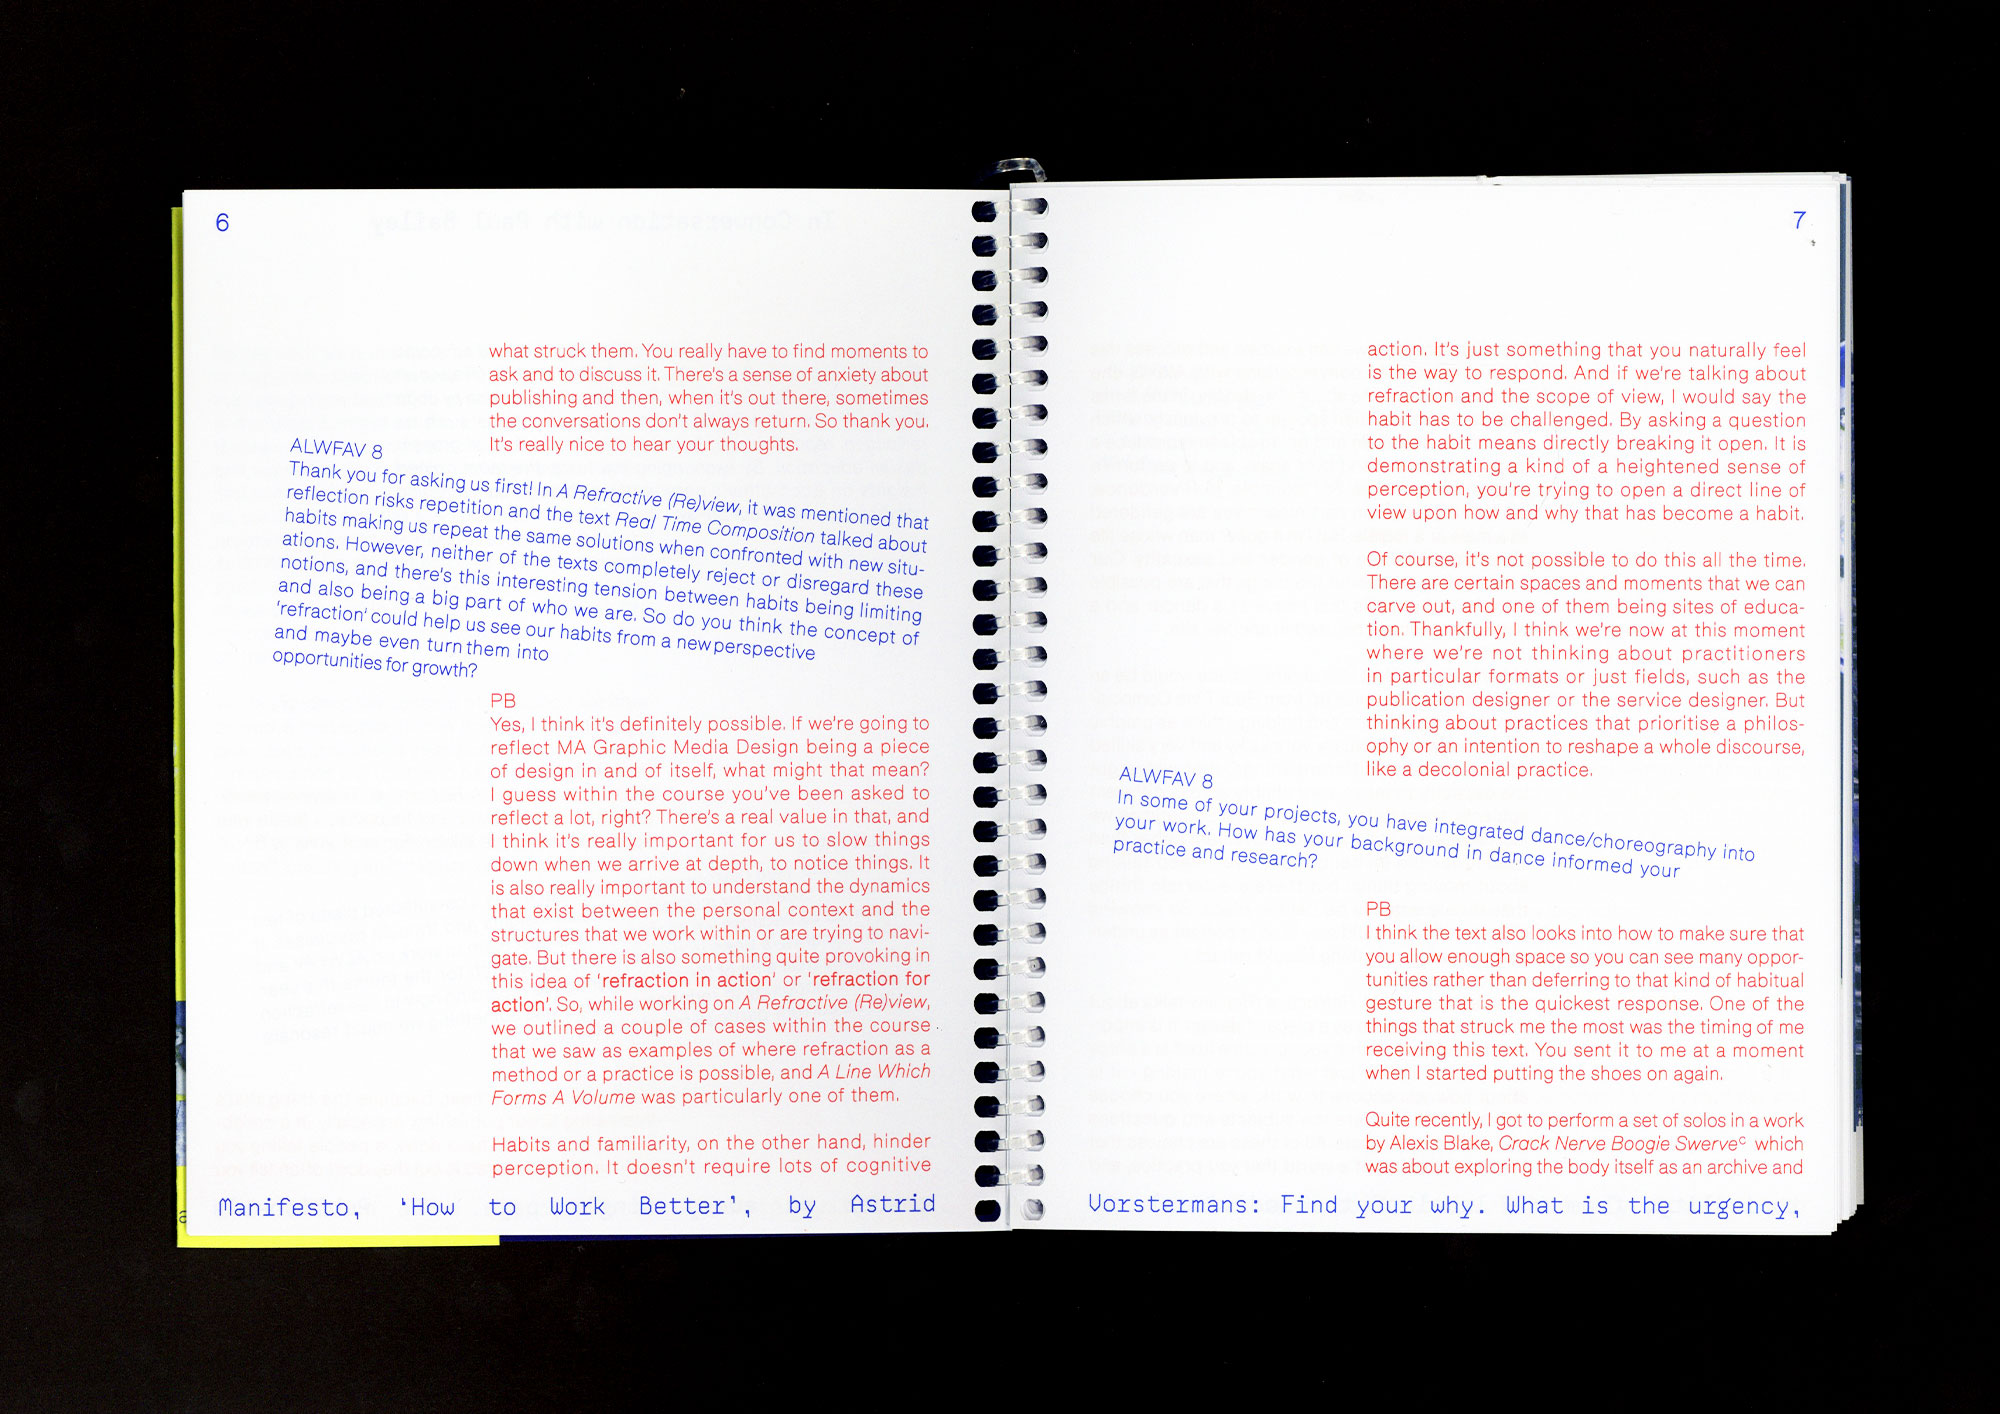 6
what struck them. You really have to find moments to
ask and to discuss it. There's a sense of anxiety about
publishing and then, when it's out there, sometimes
the conversations don't always return. So thank you.
It's really nice to hear your thoughts.
ALWFAV 8
Thank you for asking us first! In A Refractive (Re)view, it was mentioned that
reflection risks repetition and the text Real Time Composition talked about
habits making us repeat the same solutions when confronted with new situ-
ations. However, neither of the texts completely reject or disregard these
notions, and there's this interesting tension between habits being limiting
and also being a big part of who we are. So do you think the concept of
'refraction' could help us see our habits from a new perspective
and maybe even turn them into
opportunities for growth?
PB
Yes, I think it's definitely possible. If we're going to
reflect MA Graphic Media Design being a piece
of design in and of itself, what might that mean?
I guess within the course you've been asked to
reflect a lot, right? There's a real value in that, and
I think it's really important for us to slow things
down when we arrive at depth, to notice things. It
is also really important to understand the dynamics
that exist between the personal context and the
structures that we work within or are trying to navi-
gate. But there is also something quite provoking in
this idea of 'refraction in action' or 'refraction for
action'. So, while working on A Refractive (Re)view,
we outlined a couple of cases within the course
that we saw as examples of where refraction as a
method or a practice is possible, and A Line Which
Forms A Volume was particularly one of them.
Habits and familiarity, on the other hand, hinder
perception. It doesn't require lots of cognitive
Manifesto, 'How to Work Better', by Astrid
7
action. It's just something that you naturally feel
is the way to respond. And if we're talking about
refraction and the scope of view, I would say the
habit has to be challenged. By asking a question
to the habit means directly breaking it open. It is
demonstrating a kind of a heightened sense of
perception, you're trying to open a direct line of
view upon how and why that has become a habit.
Of course, it's not possible to do this all the time.
There are certain spaces and moments that we can
carve out, and one of them being sites of educa-
tion. Thankfully, I think we're now at this moment
where we're not thinking about practitioners
in particular formats or just fields, such as the
publication designer or the service designer. But
thinking about practices that prioritise a philos-
ophy or an intention to reshape a whole discourse,
like a decolonial practice.
ALWFAV 8
In some of your projects, you have integrated dance/choreography into
your work. How has your background in dance informed your
practice and research?
PB
I think the text also looks into how to make sure that
you allow enough space so you can see many oppor-
tunities rather than deferring to that kind of habitual
gesture that is the quickest response. One of the
things that struck me the most was the timing of me
receiving this text. You sent it to me at a moment
when I started putting the shoes on again.
Quite recently, I got to perform a set of solos in a work
by Alexis Blake, Crack Nerve Boogie Swerveᶜ which
was about exploring the body itself as an archive and
Vorstermans: Find your why. What is the urgency,